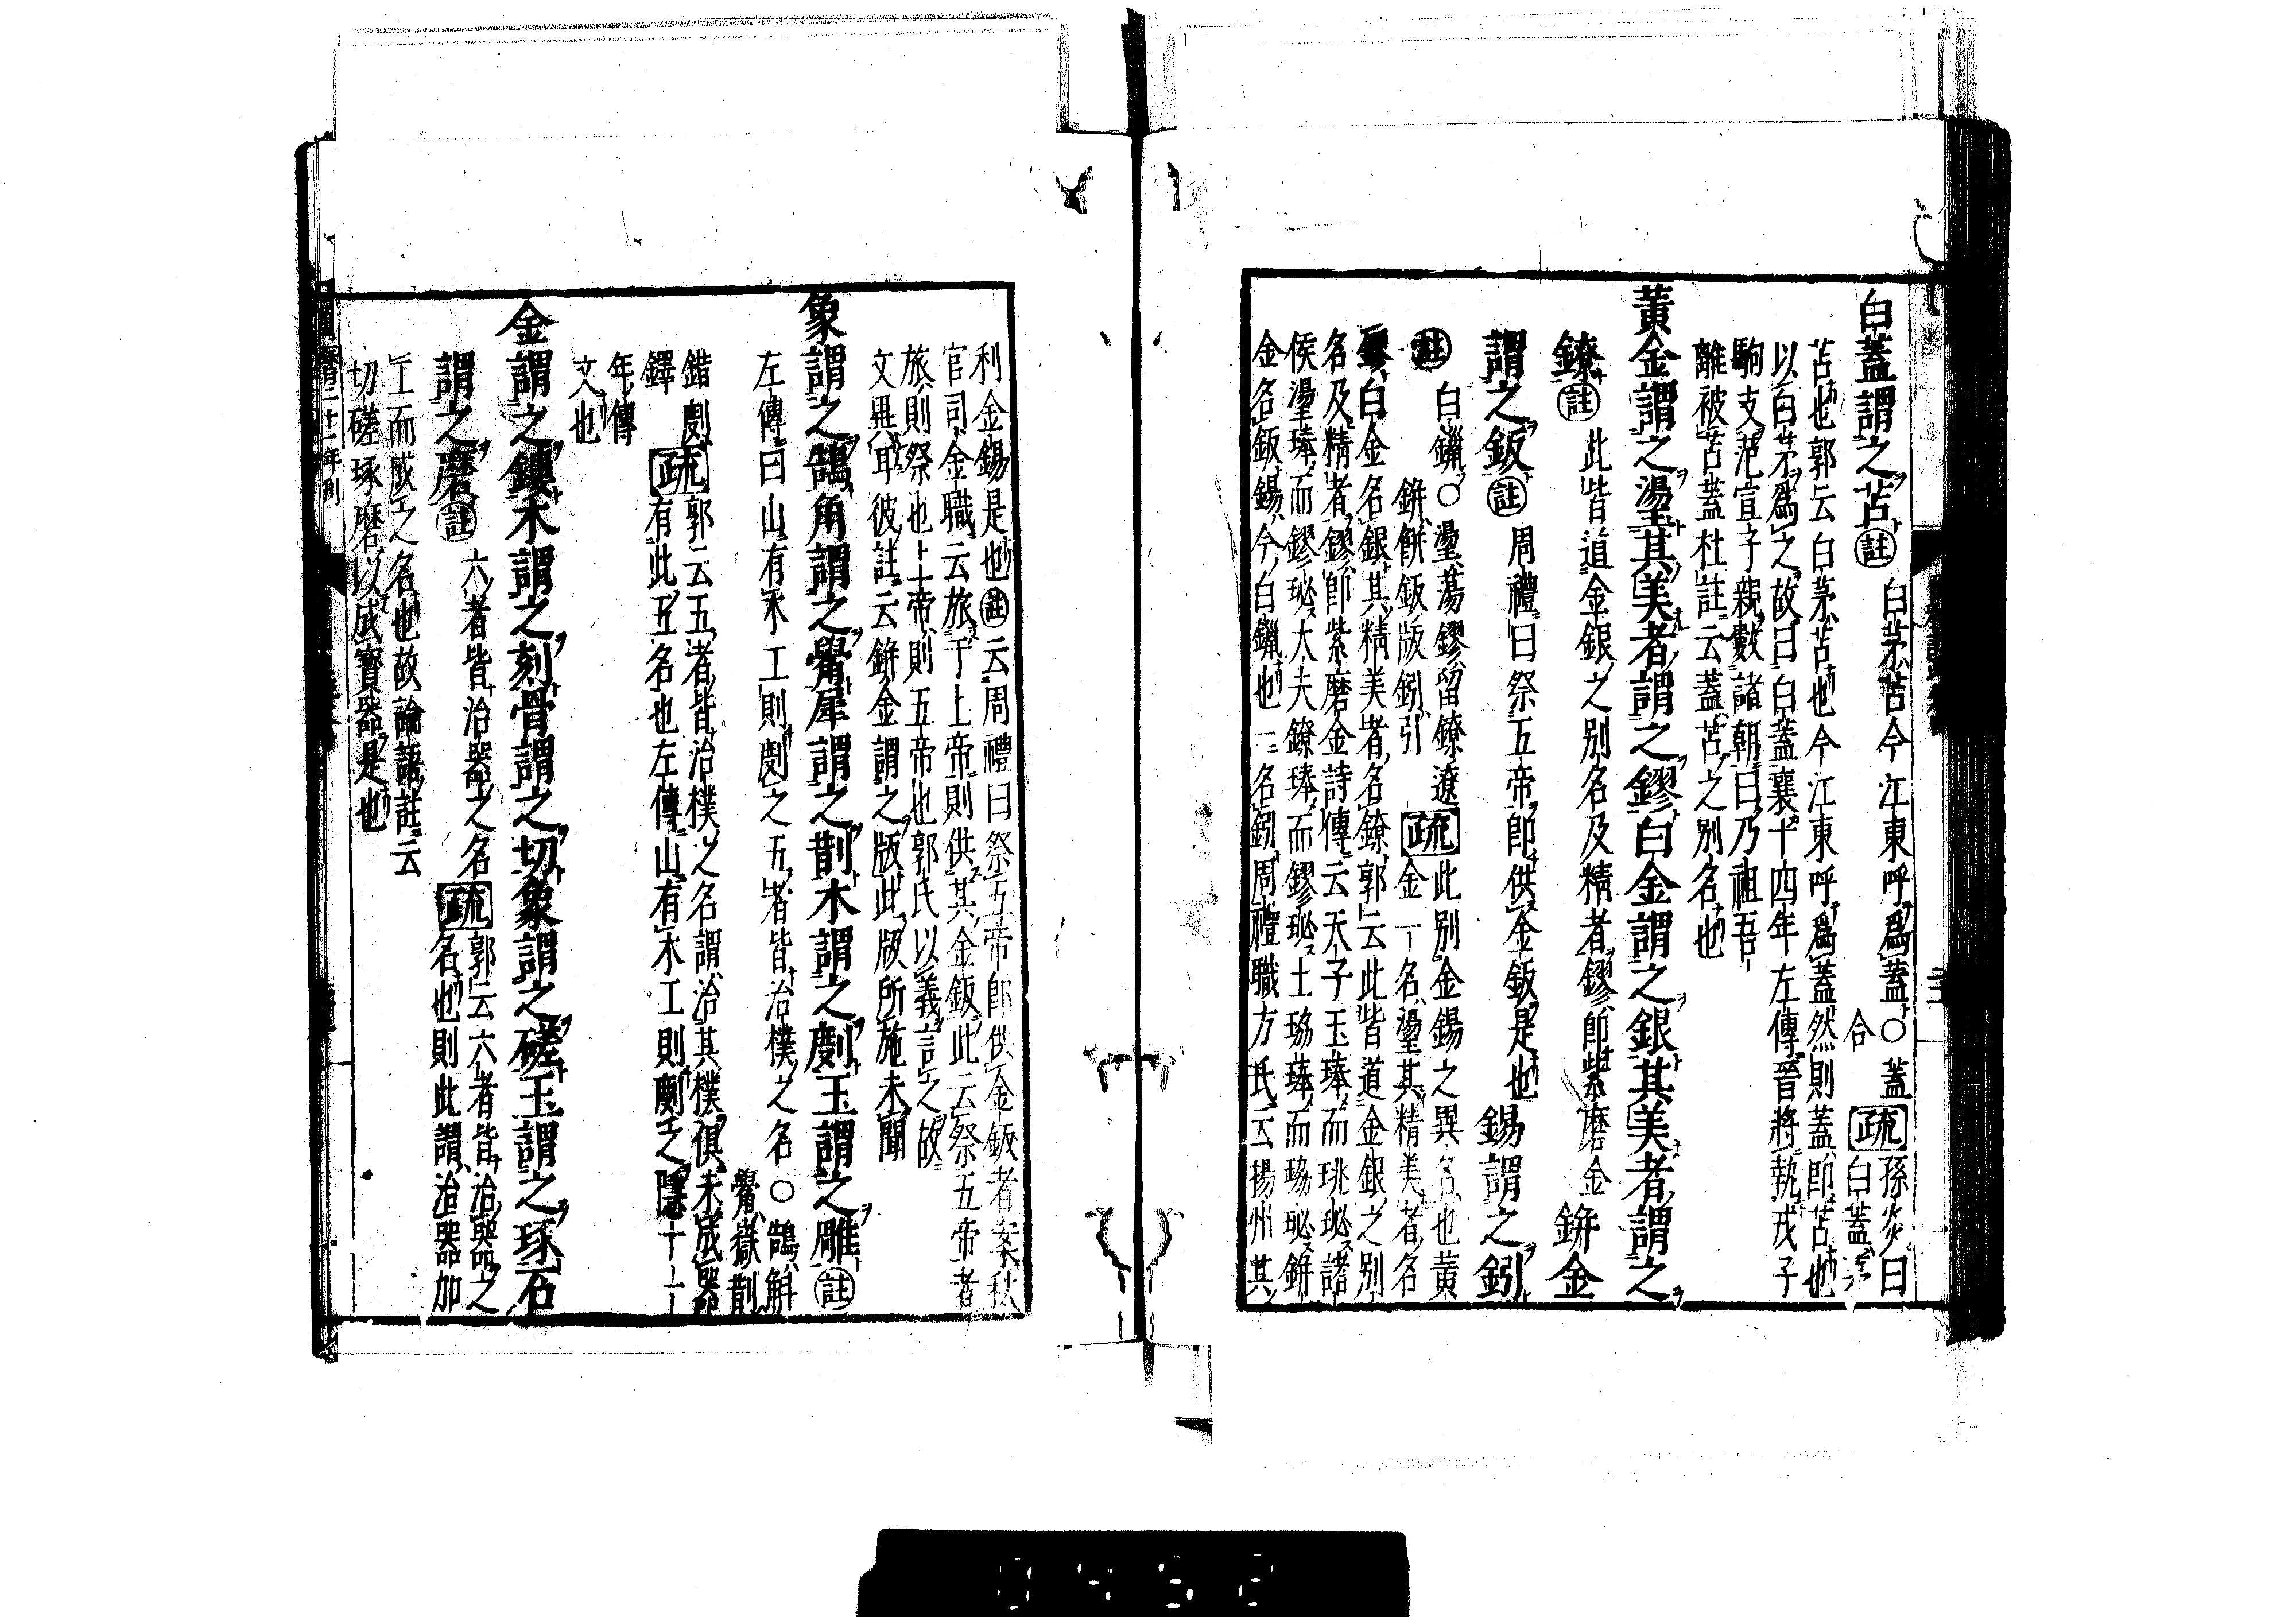 白蓋謂之苫註白茅苫今江東呼爲蓋○蓋合疏孫炎曰白蓋茅
苫也郭云白茅苫也今江東呼爲蓋然則蓋即苫也
以白茅爲之故曰白蓋襄十四年左傳晉將執戎子
駒支范宣子親數諸朝曰乃祖吾
離被苫蓋杜註云蓋苫之別名也
黃金謂之璗其美者謂之鏐白金謂之銀其美者謂之
鐐註此皆道金銀之別名及精者鏐即紫磨金鉼金
謂之鈑註周禮曰祭五帝即供金鈑是也錫謂之鈏
註白鑞○璗蕩鏐留鐐遼
鉼餅鈑版鈏引疏此別金錫之異名也黃
金一名璗其精美者名
鏐白金名銀其精美者名鐐郭云此皆道金銀之別
名及精者鏐即紫磨金詩傳云天子玉琫而珧珌諸
侯璗琫而鏐珌大夫鐐琫而鏐珌士珕琫而珕珌鉼
金名鈑錫今白鑞也一名鈏周禮職方氏云揚州其
利金錫是也註云周禮曰祭五帝即供金鈑者案秋
官司金職云旅于上帝則供其金鈑此云祭五帝者
旅則祭也上帝則五帝也郭氏以義言之故
文異耳彼註云鉼金謂之版此版所施未聞
象謂之鵠角謂之觷犀謂之剒木謂之劇玉謂之雕註
左傳曰山有木工則劇之五者皆治樸之名○鵠斛
觷嶽剒
錯劇
鐸疏郭云五者皆治樸之名謂治其樸俱未成器
有此五名也左傳山有木工則劇之隱十一
年傳
文也
金謂之鏤木謂之刻骨謂之切象謂之磋玉謂之琢石
謂之磨註六者皆治器之名疏郭云六者皆治器之
名也則此謂治器加
工而成之名也故論語註云
切磋琢磨以成寶器是也